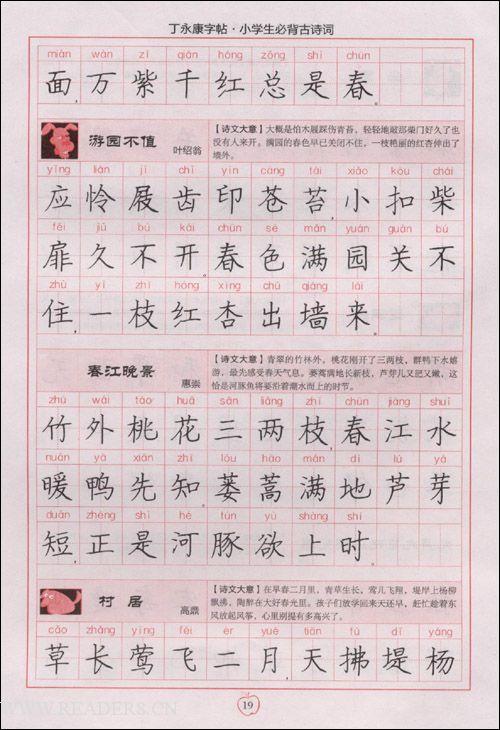 丁永康字帖·小学生必背古诗词
miàn wàn zǐ qiān hóng zǒng shì chūn
面,万紫千红总是春。
游园不值
叶绍翁
【诗文大意】大概是怕木屐踩伤青苔，轻轻地敲那柴门好久了也
没有人来开。满园的春色早已关闭不住，一枝艳丽的红杏伸出了
墙外。
yīng lián jī chǐ yìn cāng tái xiǎo kòu chái
应怜屐齿印苍苔,小扣柴
fēi jiǔ bù kāi chūn sè mǎn yuán guān bú
扉久不开。春色满园关不
zhù yì zhī hóng xìng chū qiáng lái
住,一枝红杏出墙来。
春江晚景
惠崇
【诗文大意】青翠的竹林外，桃花刚开了三两枝，群鸭下水嬉
游，最先感受春天气息。蒌蒿满地长新枝，芦芽儿又肥又嫩，这
恰是河豚鱼将要沿着潮水而上的时节。
zhú wài táo huā sān liǎng zhī chūn jiāng shuǐ
竹外桃花三两枝,春江水
nuǎn yā xiān zhī lóu hāo mǎn dì lú yá
暖鸭先知。蒌蒿满地芦芽
duǎn zhèng shì hé tún yù shàng shí
短,正是河豚欲上时。
村居
高鼎
【诗文大意】在早春二月里，青草生长，莺儿飞翔，堤岸上杨柳
飘拂，陶醉在大好春光里。孩子们放学回来天还早，赶忙趁着东
风放起风筝，心里别提有多高兴了。
cǎo zhǎng yīng fēi èr yuè tiān fú dī yáng
草长莺飞二月天,拂堤杨
19
WWW.READERS.CN